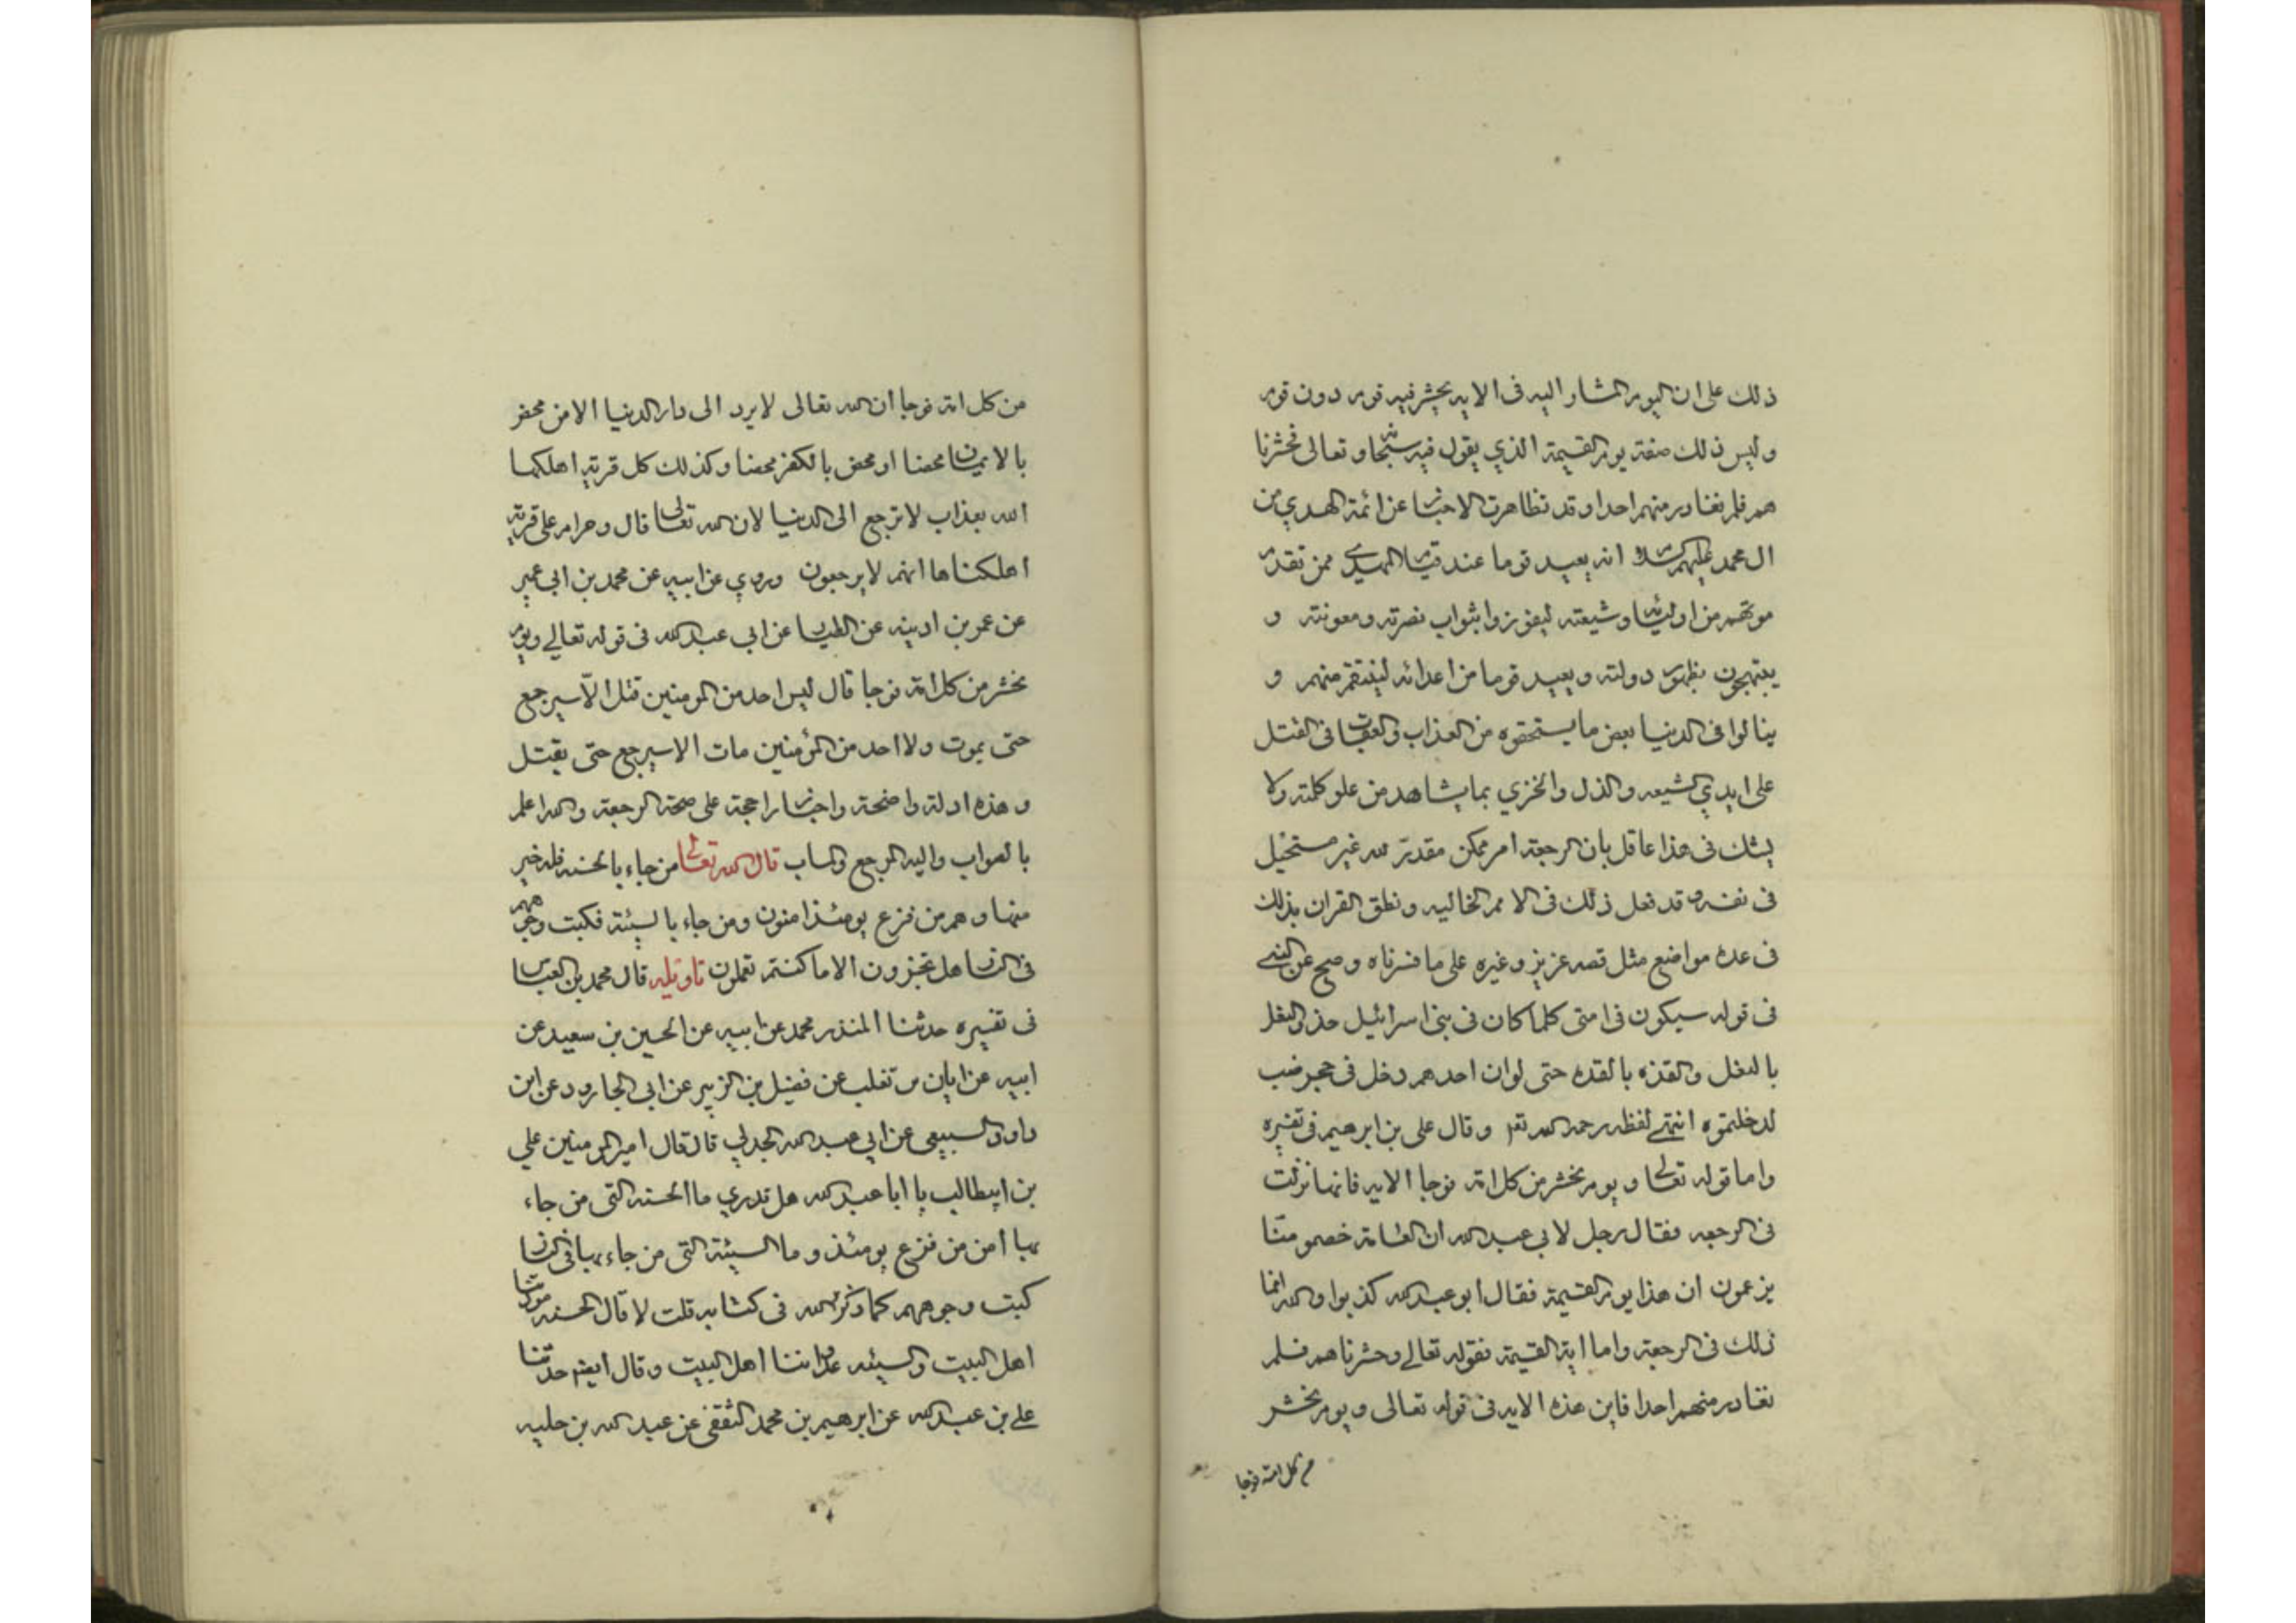 ذلك على ان اليوم المشار اليه فى الايه يحشر فيه قوم دون قوم
وليس ذلك صفة يوم القيمة الذي يقول فيه سبحانه وتعالى فحشرنا
هم فلم نغادر منهم احدا وقد تظاهرت الاخبار عن ائمة الهدي من
ال محمد عليهم السلام انه يعيد قوما عند قيام المهدي ممن تقدم
موتهم من اوليائه وشيعته ليفوزوا بثواب نصرته ومعونته و
يبتهجون بظهور دولته ويعيد قوما من اعدائه لينتقم منهم و
ينالوا فى الدنيا بعض ما يستحقوه من العذاب والعقاب فى القتل
على ايدي الشيعه والذل والخزي بما يشاهد من علو كلمته ولا
يشك فى هذا عاقل بان الرجعة امر ممكن مقدر لله غير مستحيل
فى نفسه وقد فعل ذلك فى الامم الخاليه ونطق القران بذلك
فى عدة مواضع مثل قصه عزيز وغيره على ما فسرناه وصح عن النبي
فى قوله سيكون فى امتى كلما كان فى بنى اسرائيل حذو النعل
بالنعل والقذه بالقذه حتى لو ان احدهم دخل فى جحر ضب
لدخلتموه انتهى لفظه رحمه الله تعم وقال على بن ابرهيم فى تفسيره
واما قوله تعالى ويوم نحشر من كل امة فوجا الايه فانها نزلت
فى الرجعه فقال رجل لابي عبد الله ان العامة خصمو متنا
يزعمون ان هذا يوم القيمة فقال ابو عبد الله كذبوا والله انما
ذلك فى الرجعة واما اية القيمة فقوله تعالى وحشرناهم فلم
نغادر منهم احدا فاين هذه الايه فى قوله تعالى ويوم نحشر
من كل امة فوجا
من كل امة فوجا ان الله تعالى لا يرد الى دار الدنيا الا من محض
بالايمان محضا او محض بالكفر محضا وكذلك كل قرية اهلكها
الله بعذاب لا ترجع الى الدنيا لان الله تعالى قال وحرام على قرية
اهلكناها انهم لا يرجعون وروي عن ابيه عن محمد بن ابى عمير
عن عمر بن اذينه عن الطيار عن ابي عبد الله فى قوله تعالى ويوم
نحشر من كل امة فوجا قال ليس احد من المومنين قتل الا سيرجع
حتى يموت ولا احد من المؤمنين مات الا سيرجع حتى يقتل
وهذه ادلة واضحة واخبار راجحة على صحة الرجعة والله اعلم
بالصواب واليه المرجع والماب قال الله تعالى من جاء بالحسنه فله خير
منها وهم من فزع يومئذ امنون ومن جاء بالسيئة فكبت وجوههم
فى النار هل تجزون الا ما كنتم تعملون تاويله قال محمد بن العباس
فى تفسيره حدثنا المنذر محمد عن ابيه عن الحسين بن سعيد عن
ابيه عن ابان بن تغلب عن فضيل بن الزبير عن ابي الجارود عن ابن
داود السبيعى عن ابي عبد الله الجدلي قال قال امير المومنين علي
بن ابيطالب يا ابا عبد الله هل تدري ما الحسنه التى من جاء
بها امن من فزع يومئذ وما السيئة التى من جاء بها فى النار
كبت وجوههم كما ذكرهم الله فى كتابه قلت لا قال الحسنه مودتنا
اهل البيت والسيئه عداوتنا اهل البيت وقال ايضا حدثنا
على بن عبد الله عن ابرهيم بن محمد الثقفى عن عبد الله بن جليه